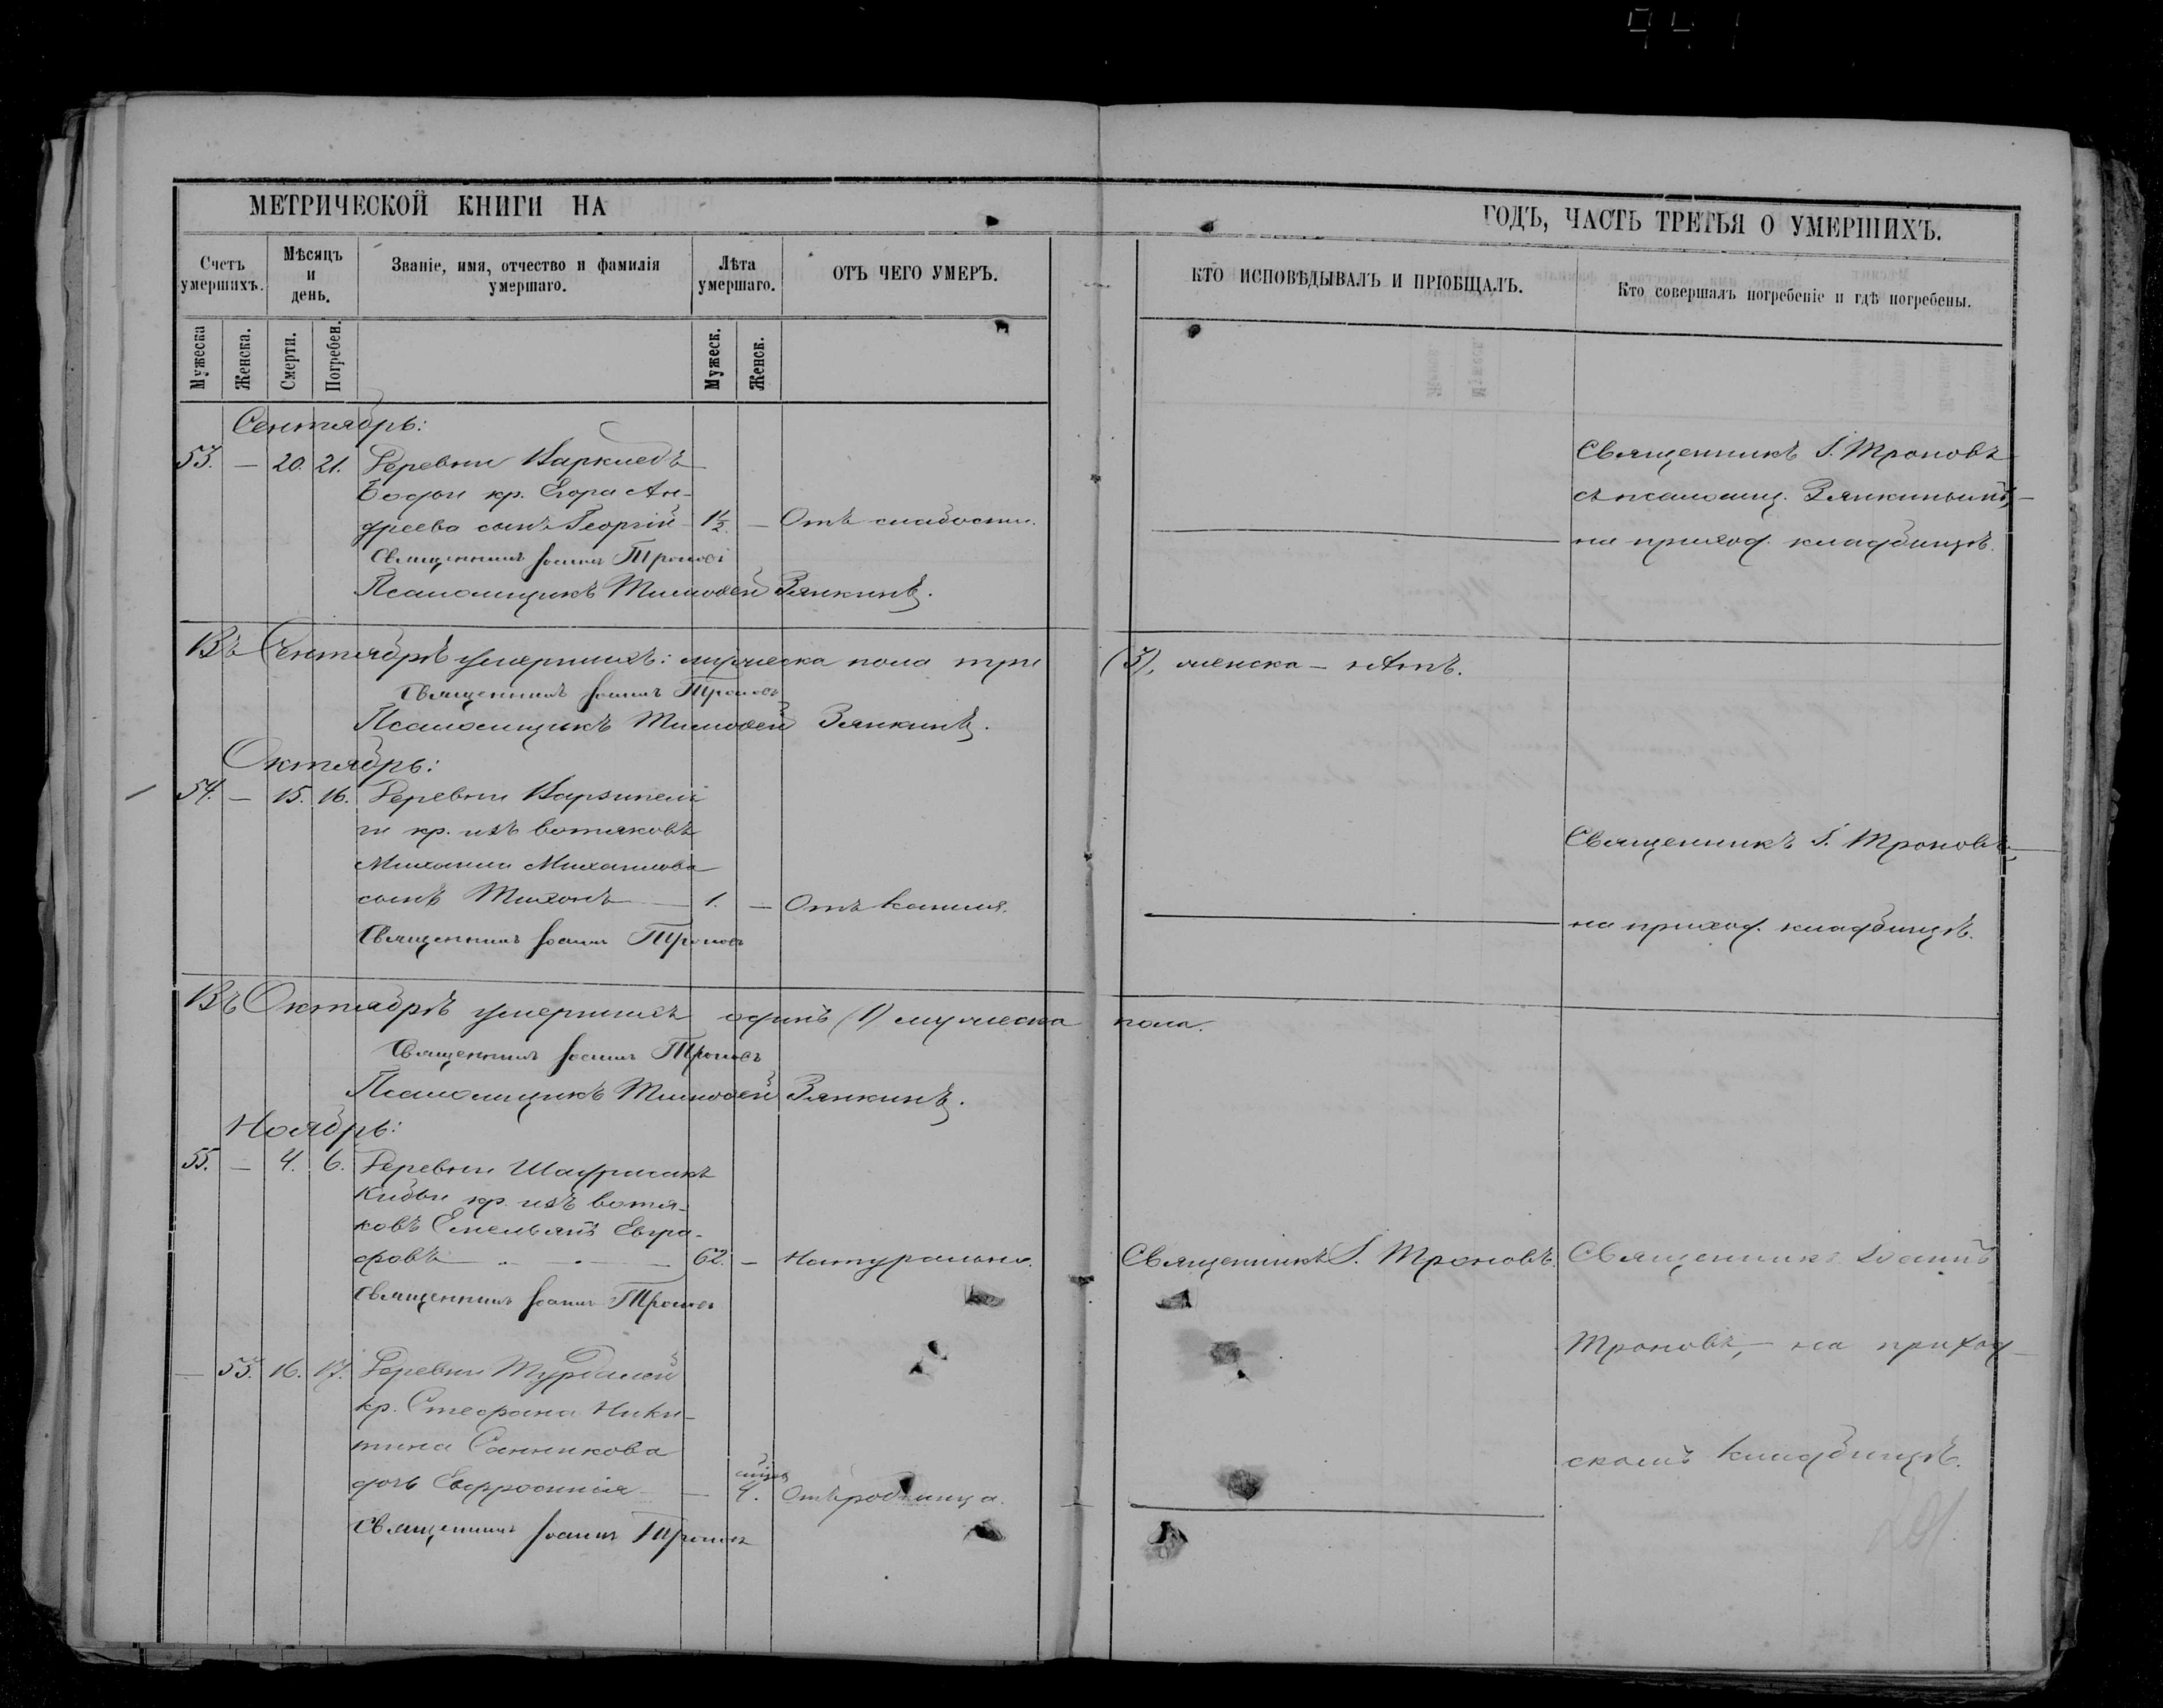 МЕТРИЧЕСКОЙ КНИГИ НА
ГОДЪ, ЧАСТЬ ТРЕТЬЯ О УМЕРШИХЪ.
Счетъ умершихъ.
Мѣсяцъ и день.
Званіе, имя, отчество и фамилія умершаго.
Лѣта умершаго.
ОТЪ ЧЕГО УМЕРЪ.
КТО ИСПОВѢДЫВАЛЪ И ПРІОБЩАЛЪ.
Кто совершалъ погребеніе и гдѣ погребены.
Мужеска
Женска.
Смерти.
Погребен.
Мужеск.
Женск.
Сентябрь:
53. — 20. 21. Деревни Варкледъ
Бодьи кр. Егора Ан-
дреева сынъ Георгій 1½ — Отъ слабости.
Священникъ Іоаннъ Троновъ
Псаломщикъ Тимофей Зянкинъ.
Священникъ І. Троновъ
съ псаломщ. Зянкинымъ,
на приход. кладбищѣ.
Въ Сентябрѣ умершихъ: мужеска пола три (3), женска — нѣтъ.
Священникъ Іоаннъ Троновъ
Псаломщикъ Тимофей Зянкинъ.
Октябрь:
54. — 15. 16. Деревни Варзипель
ги кр. изъ вотяковъ
Михаила Михаилова
сынъ Тихонъ — 1. — Отъ кашля.
Священникъ Іоаннъ Троновъ
Священникъ І. Троновъ,
на приход. кладбищѣ.
Въ Октябрѣ умершихъ одинъ (1) мужеска пола.
Священникъ Іоаннъ Троновъ
Псаломщикъ Тимофей Зянкинъ.
Ноябрь:
55. — 4. 6. Деревни
Кибьи кр. изъ вотя-
ковъ Емельянъ Евгра-
фовъ 62. — Натурально.
Священникъ Іоаннъ Троновъ
Священникъ І. Троновъ.
Священникъ Іоаннъ
Троновъ, — на приход-
скомъ кладбищѣ.
— 53. 16. 17. Деревни Турдалей
кр. Стефана Ники-
тина Санникова
дочь Евфросинія — 4. Отъ родимца.
Священникъ Іоаннъ Троновъ